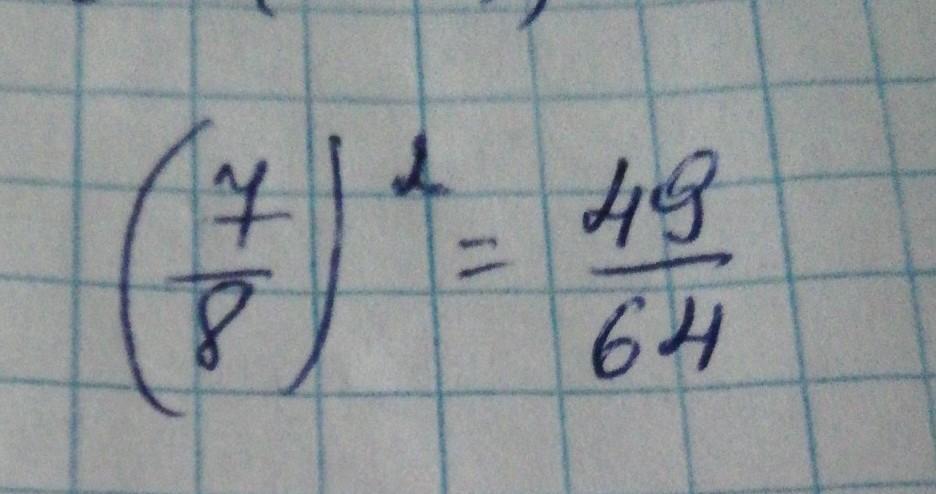 (7/8)² = 49/64